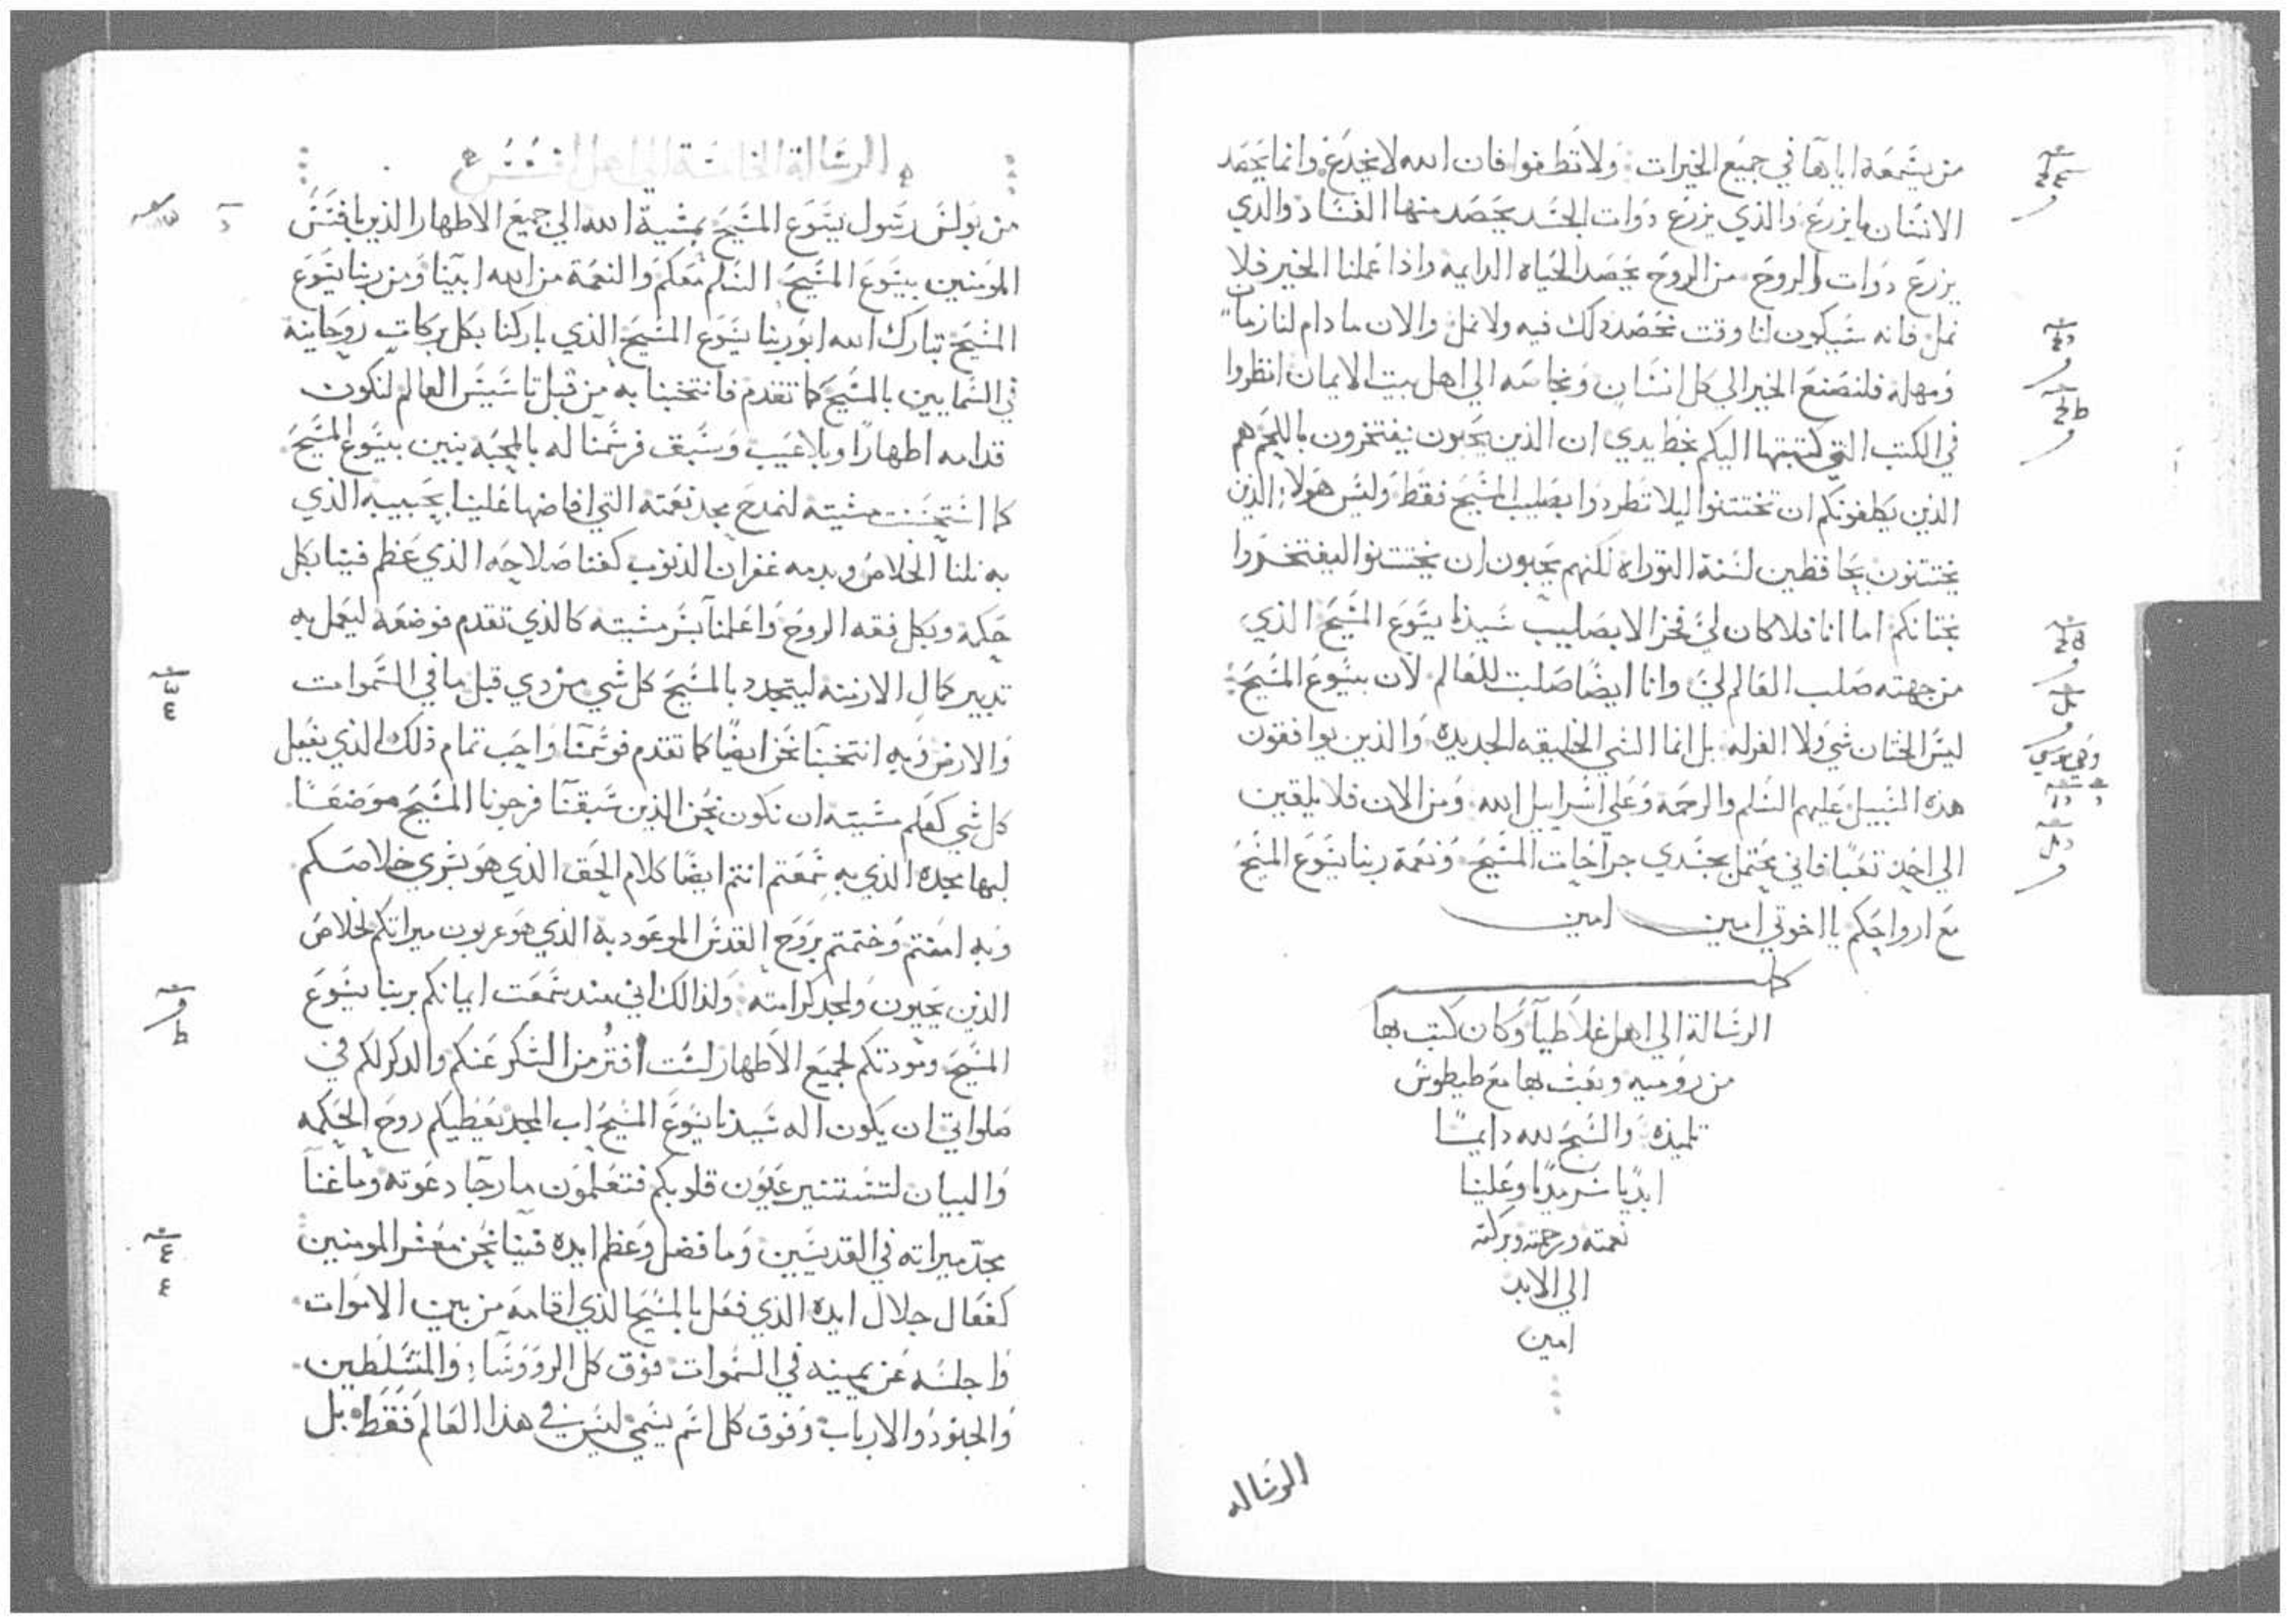 من يسمعه اياها في جميع الخيرات ولا تطغوا فان الله لا يخدع وانما يحصد
الانسان ما يزرع والذي يزرع ذوات الجسد يحصد منها الفساد والذي
يزرع ذوات الروح من الروح يحصد الحياه الدايمه واذا عملنا الخير فلا
نمل فانه سيكون لنا وقت نحصد ذلك فيه ولا نمل والان ما دام لنا زمان
ومهله فلنصنع الخير الي كل انسان وبخاصه الي اهل بيت الايمان انظروا
في الكتب التي كتبتها اليكم بخط يدي ان الذين يحبون يفتخرون باللحم هم
الذين يكلفونكم ان تختتنوا ليلا تطردوا بصليب المسيح فقط وليس هولاء الذين
يختتنون بحافظين لسنة التوراه لكنهم يحبون ان تختتنوا ليفتخروا
بختانكم اما انا فلا كان لي فخر الا بصليب سيدنا يسوع المسيح الذي
من جهته صلب العالم لي وانا ايضا صلبت للعالم لان بيسوع المسيح
ليس الختان شي ولا الغرله بل انما الشي الخليقه الجديده والذين يوافقون
هذه السبيل عليهم السلم والرحمه وعلي اسراييل الله ومن الان فلا يلقين
الي احد تعبا فاني محتمل بجسدي جراحات المسيح ونعمة ربنا يسوع المسيح
مع ارواحكم يا اخوتي امين امين
الرسالة الي اهل غلاطيا وكان كتب بها
من روميه وبعث بها مع طيطوس
تلميذه والسبح لله دايما
ابديا سرمديا وعلينا
نعمته ورحمته وبركته
الي الابد
امين
الرساله
الرسالة الخامسة الي اهل افسس
من بولس رسول يسوع المسيح بمشية الله الي جميع الاطهار الذين بافسس
المومنين بيسوع المسيح السلم معكم والنعمة من الله ابينا ومن ربنا يسوع
المسيح تبارك الله ابو ربنا يسوع المسيح الذي باركنا بكل بركات روحانية
في السمايين بالمسيح كما تقدم فانتخبنا به من قبل تاسيس العالم لنكون
قدامه اطهارا وبلا عيب وسبق فرسمنا له بالمحبه بنين بيسوع المسيح
كما استحسنت مشيته لنمدح مجد نعمته التي افاضها علينا بحبيبه الذي
به نلنا الخلاص وبدمه غفران الذنوب كغنا صلاحه الذي عظم فينا بكل
حكمه وبكل فقه الروح واعلمنا بسر مشيته كالذي تقدم فوضعه ليعمل به
تدبير كمال الازمنه ليتجدد بالمسيح كل شي من ذي قبل ما في السموات
والارض وبه انتخبنا نحن ايضا كما تقدم فوسمنا واحب تمام ذلك الذي يفعل
كل شي كعلم مشيته ان نكون نحن الذين سبقنا فرجونا المسيح موضعا
لبها مجده الذي به سمعتم انتم ايضا كلام الحق الذي هو بشري خلاصكم
وبه امنتم وختمتم بروح القدس الموعود به الذي هو عربون ميراثكم لخلاص
الذين يحيون ولمجد كرامته ولذالك اني منذ سمعت ايمانكم بربنا يسوع
المسيح ومودتكم لجميع الاطهار لست افتر من الشكر عنكم والذكر لكم في
صلواتي ان يكون اله سيدنا يسوع المسيح اب المجد يعطيكم روح الحكمه
والبيان لتستنير عيون قلوبكم فتعلمون ما رجا دعوته وما غنا
مجد ميراثه في القديسين وما فضل وعظم ايده فينا نحن معشر المومنين
كفعال جلال ايده الذي فعل بالمسيح الذي اقامه من بين الاموات
واجلسه عن يمينه في السموات فوق كل الرووساء والمتسلطين
والجنود والارباب وفوق كل اسم يسمي ليس في هذا العالم فقط بل